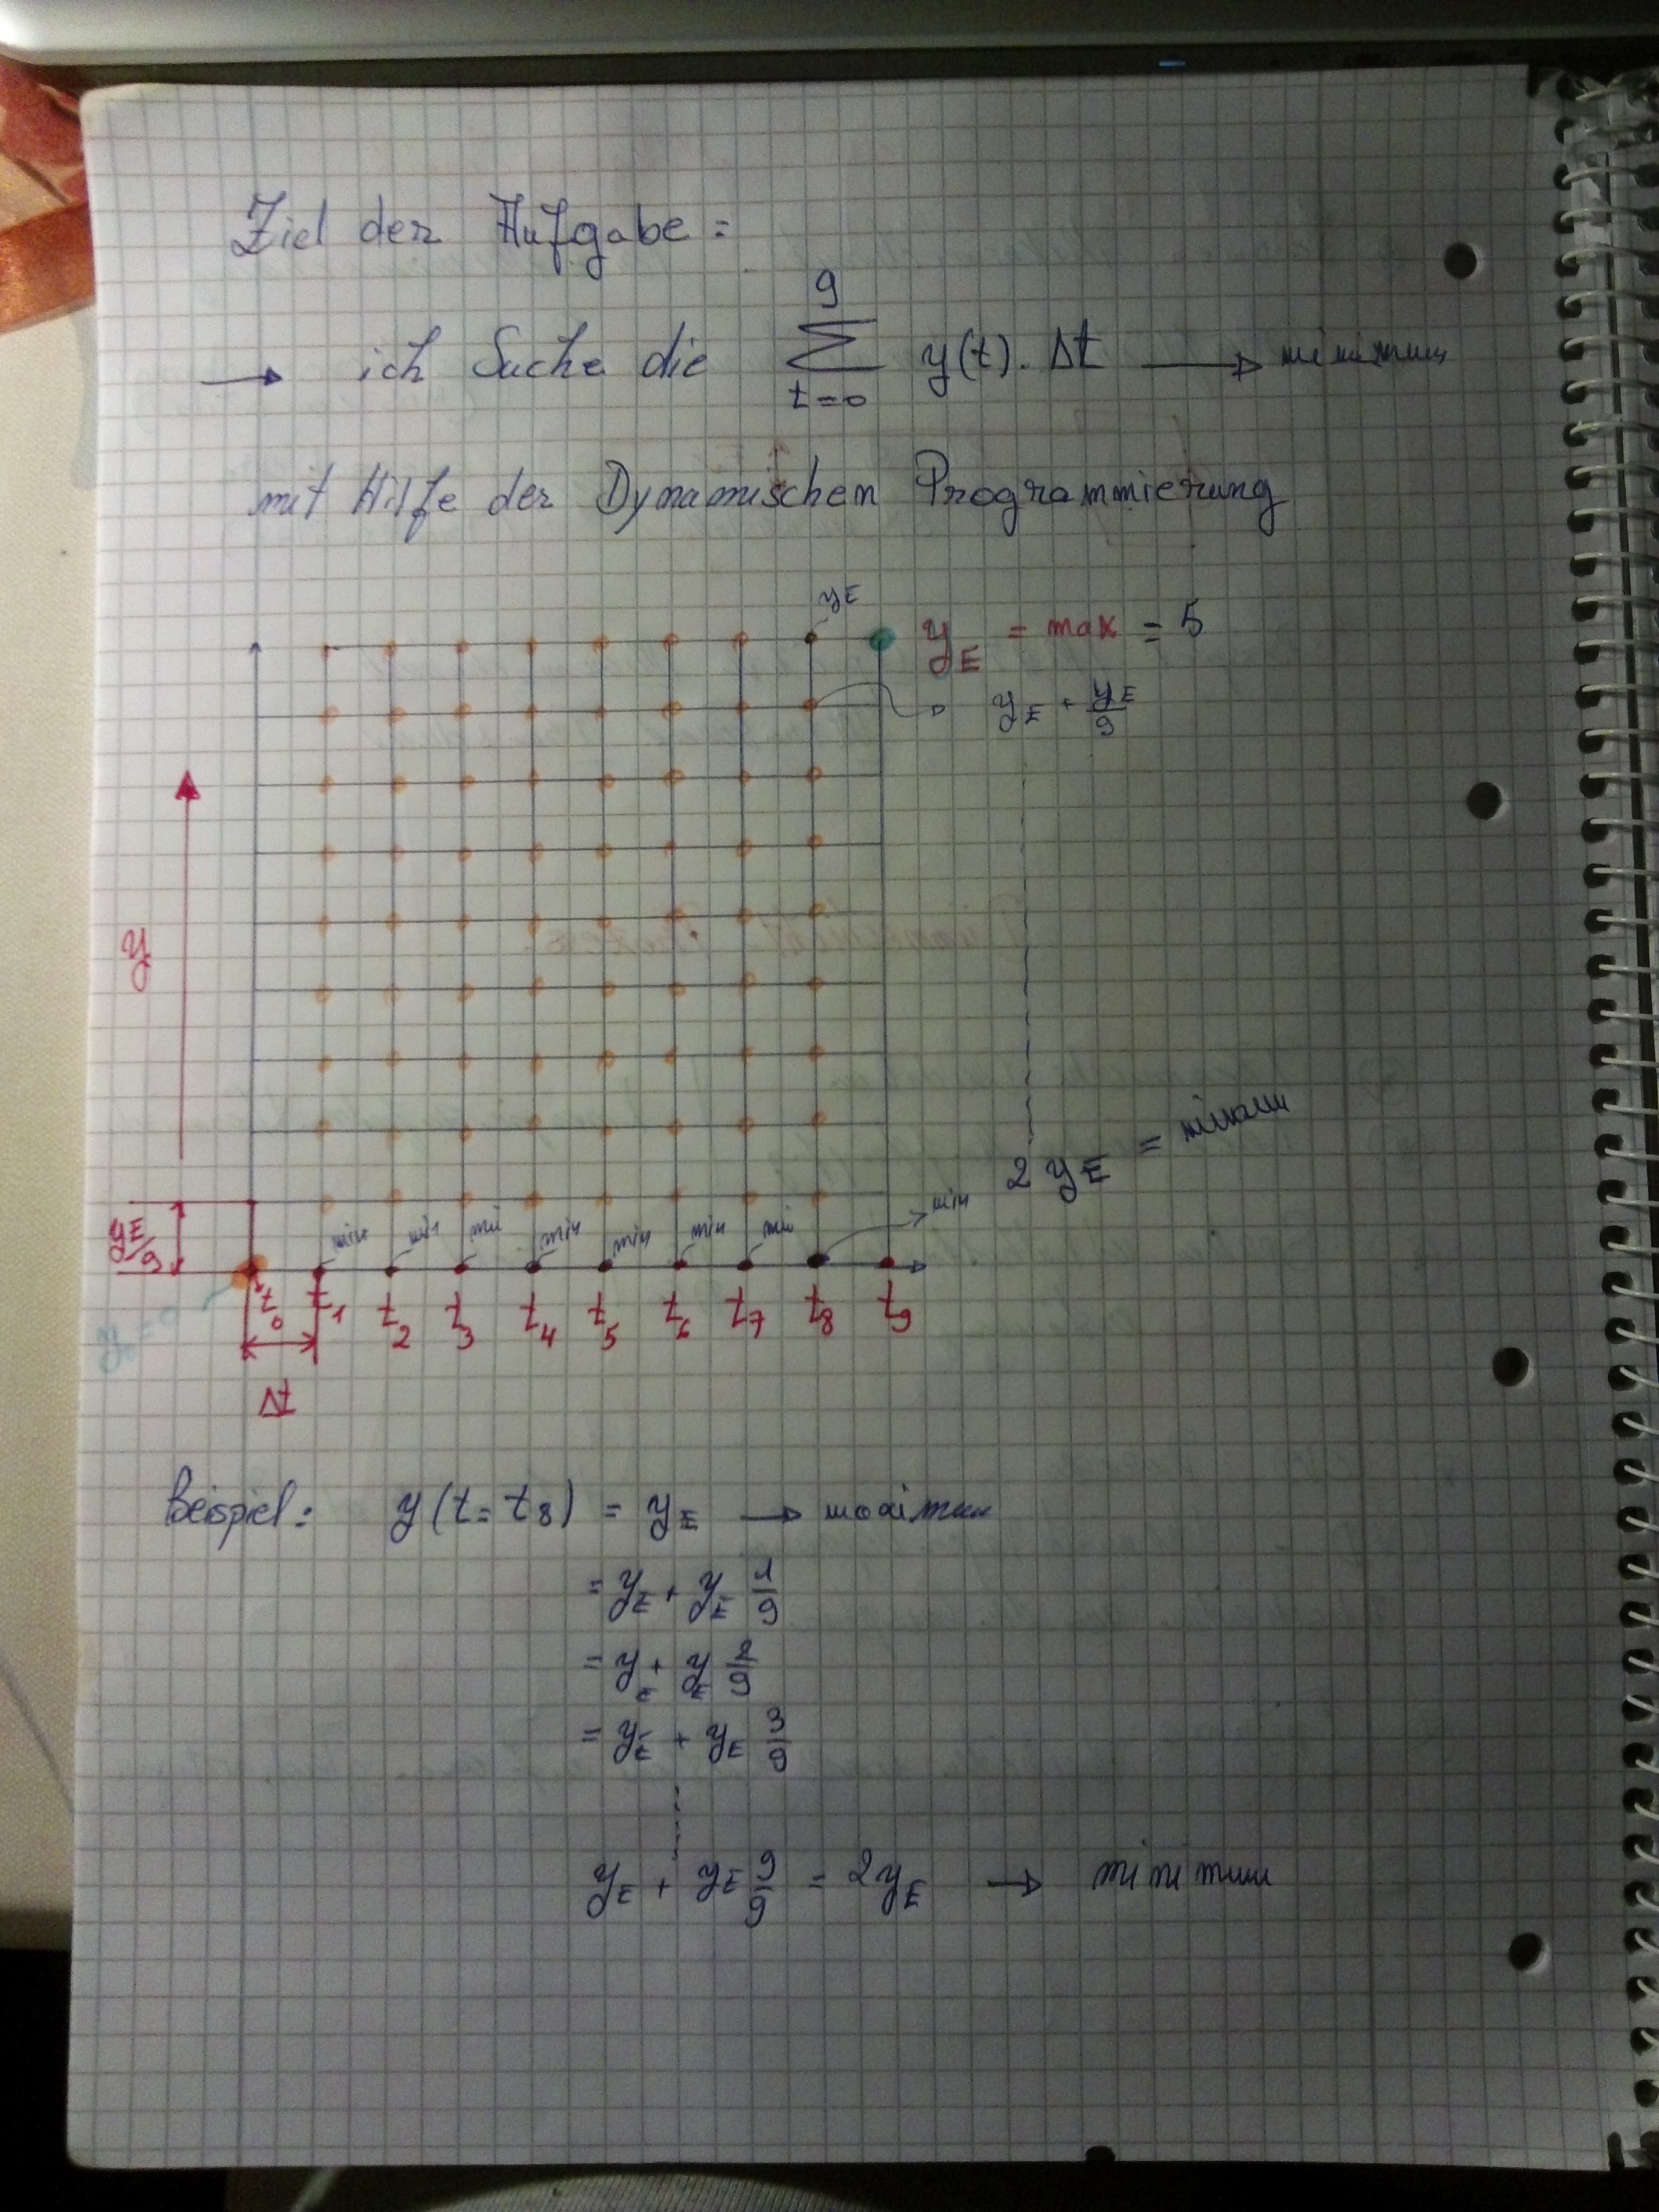 Ziel der Aufgabe:
9
→ ich Suche die ∑ y(t). Δt → minimum
t=0
mit Hilfe der Dynamischen Programmierung
yE
yE = max = 5
yE + yE/9
y
2 yE = minimum
yE/9
min min min min min min min min
t0 t1 t2 t3 t4 t5 t6 t7 t8 t9
Δt
Beispiel: y(t=t8) = yE → maximum
= yE + yE 1/9
= yE + yE 2/9
= yE + yE 3/9
yE + yE 9/9 = 2yE → minimum